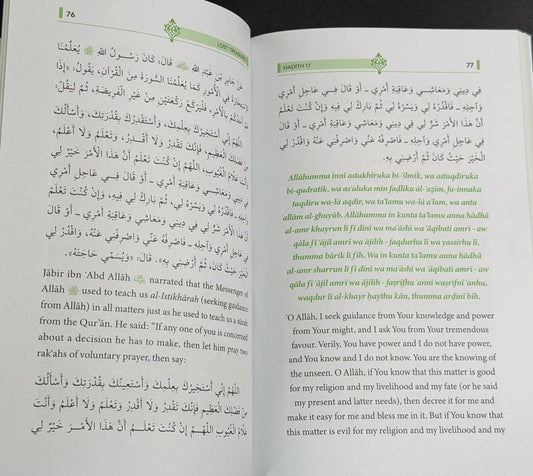 76
LOST TREASURES
عَنْ جَابِرِ بْنِ عَبْدِ اللهِ ﷺ قَالَ: كَانَ رَسُولُ اللهِ ﷺ يُعَلِّمُنَا
الِاسْتِخَارَةَ فِي الْأُمُورِ كَمَا يُعَلِّمُنَا السُّورَةَ مِنَ الْقُرْآنِ، يَقُولُ: «إِذَا
بِالْأَمْرِ، فَلْيَرْكَعْ رَكْعَتَيْنِ مِنْ غَيْرِ الْفَرِيضَةِ، ثُمَّ لِيَقُلْ:
اللَّهُمَّ إِنِّي أَسْتَخِيرُكَ بِعِلْمِكَ، وَأَسْتَقْدِرُكَ بِقُدْرَتِكَ، وَأَسْأَلُكَ
الْعَظِيمِ، فَإِنَّكَ تَقْدِرُ وَلَا أَقْدِرُ، وَتَعْلَمُ وَلَا أَعْلَمُ،
عَلَّامُ الْغُيُوبِ، اللَّهُمَّ إِنْ كُنْتَ تَعْلَمُ أَنَّ هَذَا الْأَمْرَ خَيْرٌ لِي
فِي دِينِي وَمَعَاشِي وَعَاقِبَةِ أَمْرِي ـ أَوْ قَالَ
وَيَسِّرْهُ لِي، ثُمَّ بَارِكْ لِي فِيهِ، وَإِنْ كُنْتَ تَعْلَمُ أَنَّ
شَرٌّ لِي فِي دِينِي وَمَعَاشِي وَعَاقِبَةِ أَمْرِي ـ أَوْ قَالَ فِي
عَاجِلِ أَمْرِي وَآجِلِهِ ـ فَاصْرِفْهُ عَنِّي وَاصْرِفْنِي عَنْهُ، وَاقْدُرْ لِي
الْخَيْرَ حَيْثُ كَانَ، ثُمَّ أَرْضِنِي بِهِ. قَالَ: «وَيُسَمِّي حَاجَتَهُ».
Jābir ibn ʿAbd Allāh narrated that the Messenger of
Allāh ﷺ used to teach us al-Istikhārah (seeking guidance
from Allāh) in all matters just as he used to teach us a sūrah
from the Qurʾān. He said: "If any one of you is concerned
about a decision he has to make, then let him pray two
rakʿahs of voluntary prayer, then say:
اللَّهُمَّ إِنِّي أَسْتَخِيرُكَ بِعِلْمِكَ وَأَسْتَعِينُكَ بِقُدْرَتِكَ وَأَسْأَلُكَ
مِنْ فَضْلِكَ الْعَظِيمِ فَإِنَّكَ تَقْدِرُ وَلَا أَقْدِرُ وَتَعْلَمُ وَلَا أَعْلَمُ وَأَنْتَ
عَلَّامُ الْغُيُوبِ اللَّهُمَّ إِنْ كُنْتَ تَعْلَمُ أَنَّ هَذَا الْأَمْرَ خَيْرٌ لِي
HADITH 17
77
فِي دِينِي وَمَعَاشِي وَعَاقِبَةِ أَمْرِي ـ أَوْ قَالَ فِي عَاجِلِ أَمْرِي
وَآجِلِهِ ـ فَاقْدُرْهُ لِي وَيَسِّرْهُ لِي ثُمَّ بَارِكْ لِي فِيهِ وَإِنْ كُنْتَ تَعْلَمُ
أَنَّ هَذَا الْأَمْرَ شَرٌّ لِي فِي دِينِي وَمَعَاشِي وَعَاقِبَةِ أَمْرِي ـ أَوْ قَالَ فِي
عَاجِلِ أَمْرِي وَآجِلِهِ ـ فَاصْرِفْهُ عَنِّي وَاصْرِفْنِي عَنْهُ وَاقْدُرْ لِي
الْخَيْرَ حَيْثُ كَانَ ثُمَّ أَرْضِنِي بِهِ.
Allāhumma inni astakhiruka bi-ʿilmik, wa astaqdiruka
bi-qudratik, wa asʾaluka min faḍlika al-ʿaẓim, fa-innaka
taqdiru wa-lā aqdir, wa taʿlamu wa-lā aʿlam, wa anta
ʿallām al-ghuyūb. Allāhumma in kunta taʿlamu anna hādhā
al-amr khayrun lī fī dinī wa maʿāshi wa ʿāqibati amrī - aw
qāla fī ʿājil amrī wa ājilih - faqdurhu lī wa yassirhu lī,
thumma bārik lī fīh. Wa in kunta taʿlamu anna hādhā
al-amr sharrun lī fī dinī wa maʿāshi wa ʿāqibati amrī - aw
qāla fī ʿājil amrī wa ājilih - faṣrifhu ʿannī waṣrifni ʿanhu,
waqdur lī al-khayr ḥaythu kān, thumma arḍini bih.
'O Allāh, I seek guidance from Your knowledge and power
from Your might, and I ask You from Your tremendous
favour. Verily, You have power and I do not have power,
and You know and I do not know. You are the knowing of
the unseen. O Allāh, if You know that this matter is good
for my religion and my livelihood and my fate (or he said
my present and latter needs), then decree it for me and
make it easy for me and bless me in it. But if You know that
this matter is evil for my religion and my livelihood and my